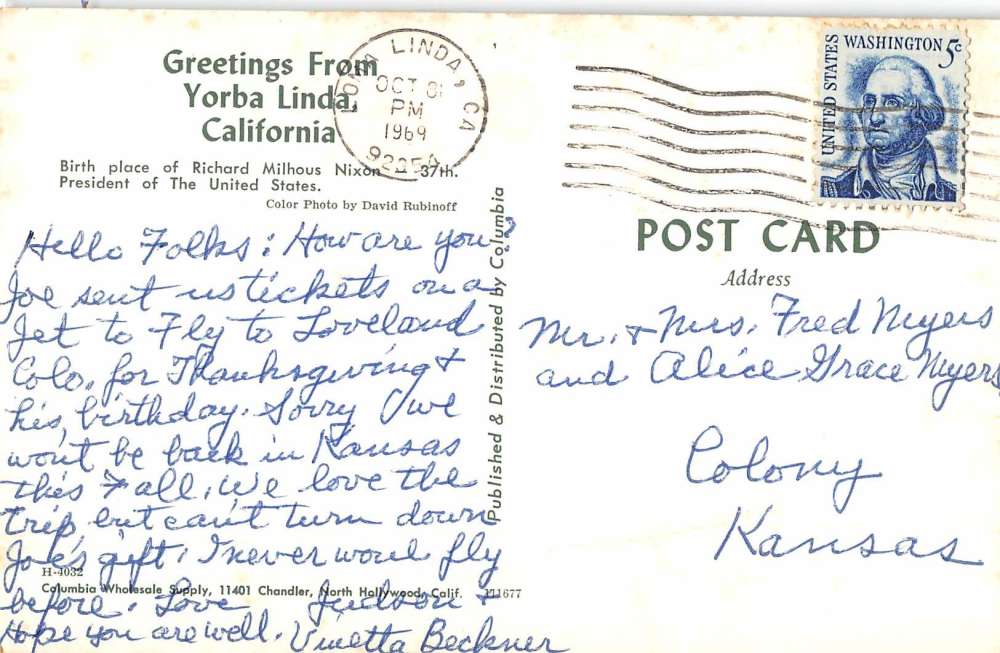 Greetings From
Yorba Linda,
California
Birth place of Richard Milhous Nixon 37th.
President of The United States.
Color Photo by David Rubinoff
LOMA LINDA, CA
OCT 31
PM
1969
92354
UNITED STATES
WASHINGTON 5c
POST CARD
Address
Hello Folks: How are you?
Joe sent us tickets on a
Jet to Fly to Loveland
Colo. for Thanksgiving &
his birthday. Sorry we
won't be back in Kansas
this Fall. We love the
trip, but can't turn down
Joe's gift. I never would fly
before. Love Judson &
Hope you are well. Vinetta Beckner
Published & Distributed by Columbia
H-4032
Columbia Wholesale Supply, 11401 Chandler, North Hollywood, Calif.
Mr. & Mrs. Fred Myers
and Alice Grace Myers
Colony
Kansas